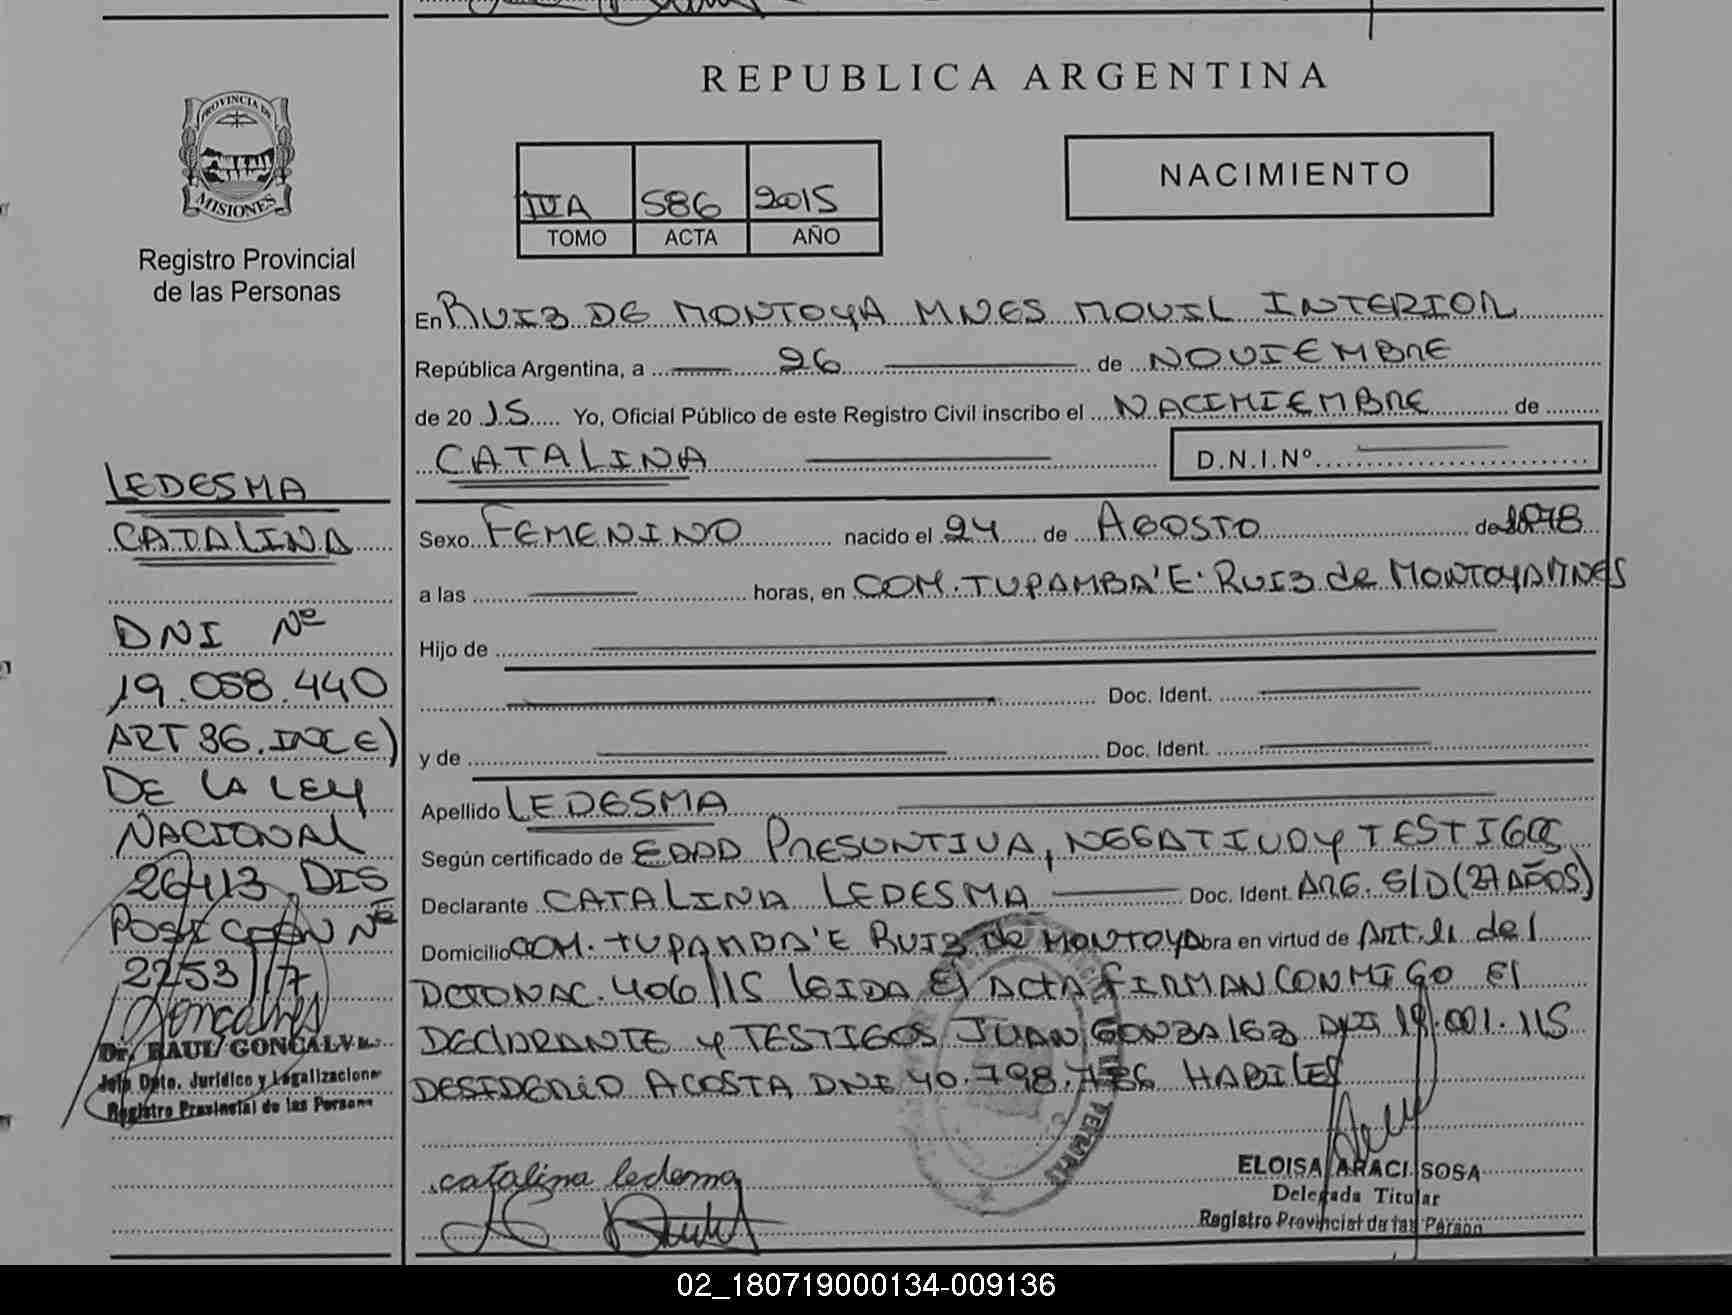 REPUBLICA ARGENTINA
PROVINCIA DE
MISIONES
Registro Provincial
de las Personas
NACIMIENTO
586 2015
TOMO ACTA AÑO
En RUIZ DE MONTOYA MNES MOVIL INTERIOR
República Argentina, a 26 de NOVIEMBRE
de 20 15 Yo, Oficial Público de este Registro Civil inscribo el NACIMIEMBRE de
CATALINA D.N.I.Nº
Sexo FEMENINO nacido el 24 de AGOSTO de
a las horas, en COM. TUPAMBA'E. RUIZ de MONTOYA MNES
Hijo de
Doc. Ident.
y de Doc. Ident.
Apellido LEDESMA
Según certificado de EDAD PRESUNTIVA, NEGATIVO Y TESTIGOS
Declarante CATALINA LEDESMA Doc. Ident. ARG. S/D (27 AÑOS)
Domicilio COM. TUPAMBA'E RUIZ de MONTOYA obra en virtud de Art. 11 del
DCTO NAC. 406/15 LEIDA El ACTA FIRMAN CONMIGO El
DECLARANTE y TESTIGOS JUAN GONZALEZ DNI 19.001.115
DESIDERIO ACOSTA DNI 40.798.786 HABILES
catalina ledema
ELOISA ARACI SOSA
Delegada Titular
Registro Provincial de las Person
LEDESMA
CATALINA
DNI Nº
19.058.440
ART 36. INC E)
DE LA LEY
NACIONAL
26413, DIS
POSICION Nº
2253/17
Goncalves
Dr. RAUL GONCALVES
Jefe Dpto. Jurídico y Legalizacione
Registro Provincial de las Person
02_180719000134-009136